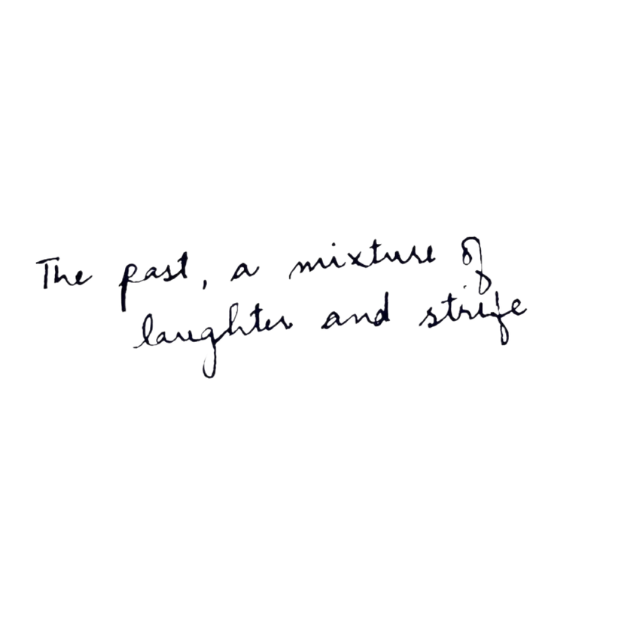 The past, a mixture of
laughter and strife